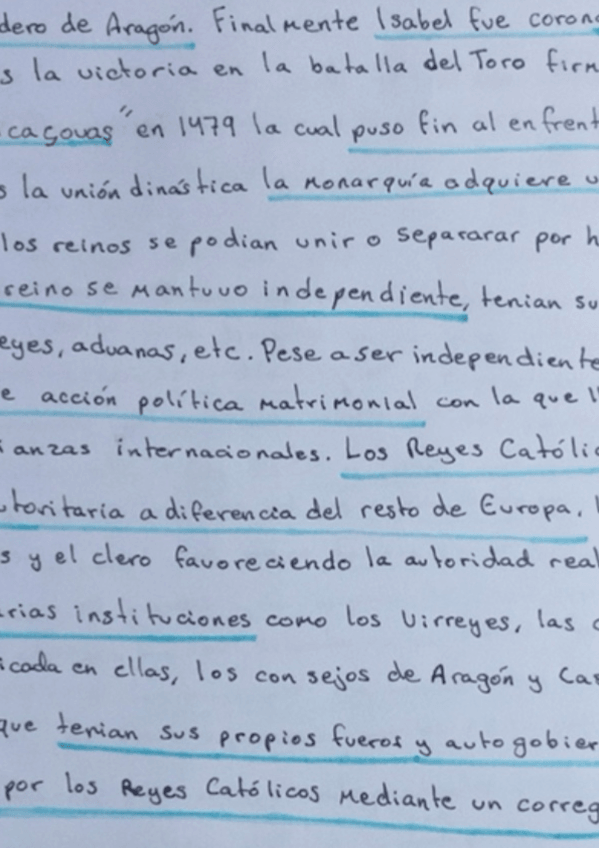 dero de Aragón. Finalmente Isabel fue coron
s la victoria en la batalla del Toro firm
caçovas" en 1479 la cual puso fin al enfrent
s la unión dinástica la monarquía adquiere u
los reinos se podian unir o separarar por h
reino se mantuvo independiente, tenian su
eyes, aduanas, etc. Pese a ser independiente
e acción política matrimonial con la que ll
ianzas internacionales. Los Reyes Católic
utoritaria a diferencia del resto de Europa.
s y el clero favoreciendo la autoridad real
rias instituciones como los Virreyes, las c
icada en ellas, los consejos de Aragón y Cas
que tenian sus propios fueros y autogobier
por los Reyes Católicos mediante un correg